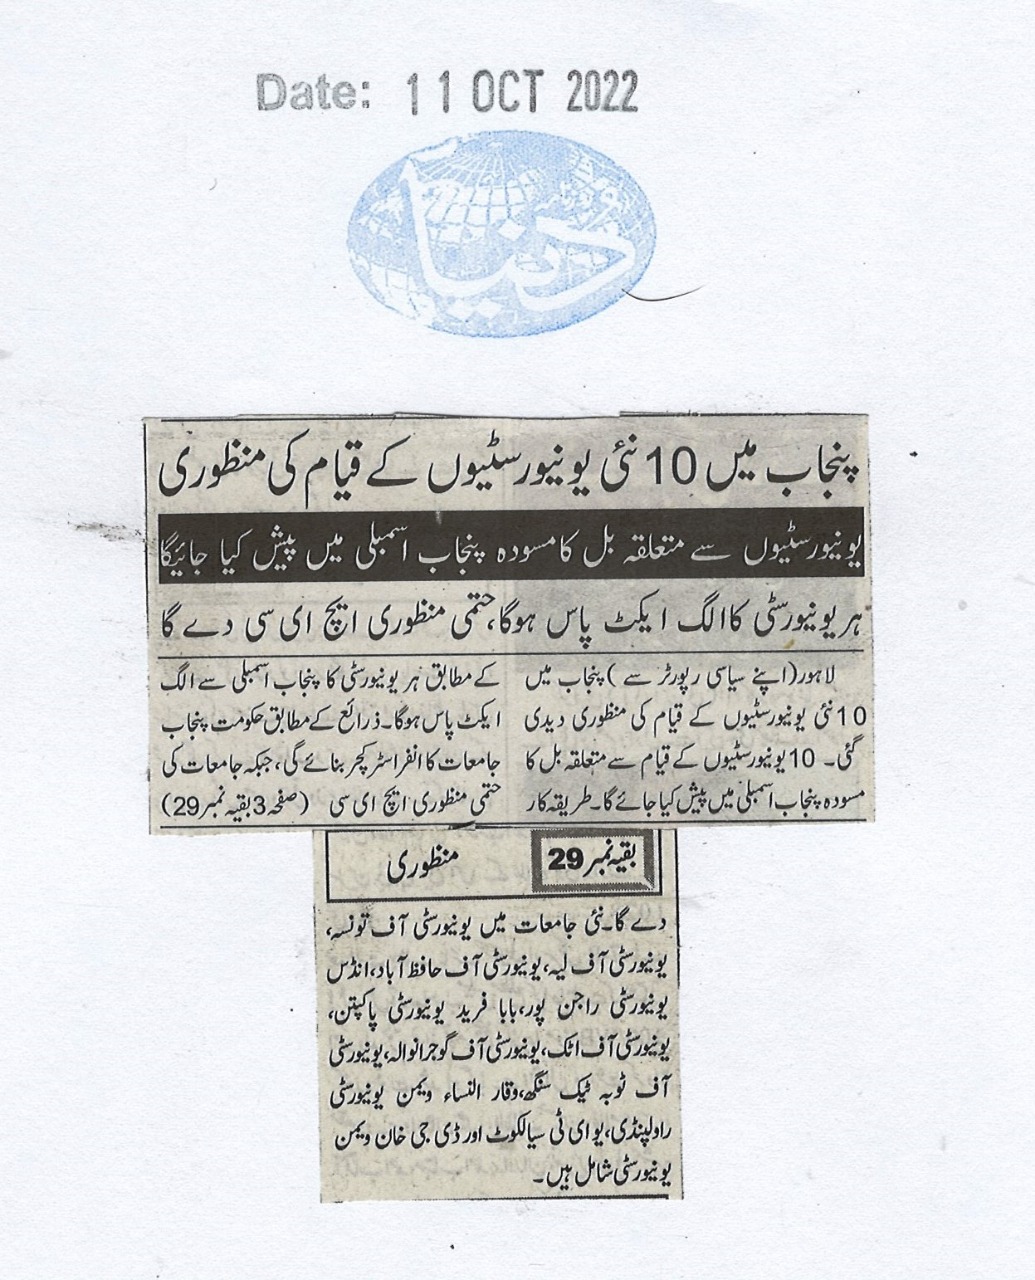 Date: 11 OCT 2022
دنیا
پنجاب میں 10 نئی یونیورسٹیوں کے قیام کی منظوری
یونیورسٹیوں سے متعلقہ بل کا مسودہ پنجاب اسمبلی میں پیش کیا جائیگا
ہر یونیورسٹی کا الگ ایکٹ پاس ہوگا، حتمی منظوری ایچ ای سی دے گا
لاہور (اپنے سیاسی رپورٹر سے) پنجاب میں
10 نئی یونیورسٹیوں کے قیام کی منظوری دیدی
گئی۔ 10 یونیورسٹیوں کے قیام سے متعلقہ بل کا
مسودہ پنجاب اسمبلی میں پیش کیا جائے گا۔ طریقہ کار
کے مطابق ہر یونیورسٹی کا پنجاب اسمبلی سے الگ
ایکٹ پاس ہوگا۔ ذرائع کے مطابق حکومت پنجاب
جامعات کا انفراسٹرکچر بنائے گی، جبکہ جامعات کی
حتمی منظوری ایچ ای سی (صفحہ 3 بقیہ نمبر 29)
بقیہ نمبر 29 منظوری
دے گا۔ نئی جامعات میں یونیورسٹی آف تونسہ،
یونیورسٹی آف لیہ، یونیورسٹی آف حافظ آباد، انڈس
یونیورسٹی راجن پور، بابا فرید یونیورسٹی پاکپتن،
یونیورسٹی آف اٹک، یونیورسٹی آف گوجرانوالہ، یونیورسٹی
آف ٹوبہ ٹیک سنگھ، وقار النساء ویمن یونیورسٹی
راولپنڈی، یو ای ٹی سیالکوٹ اور ڈی جی خان ویمن
یونیورسٹی شامل ہیں۔